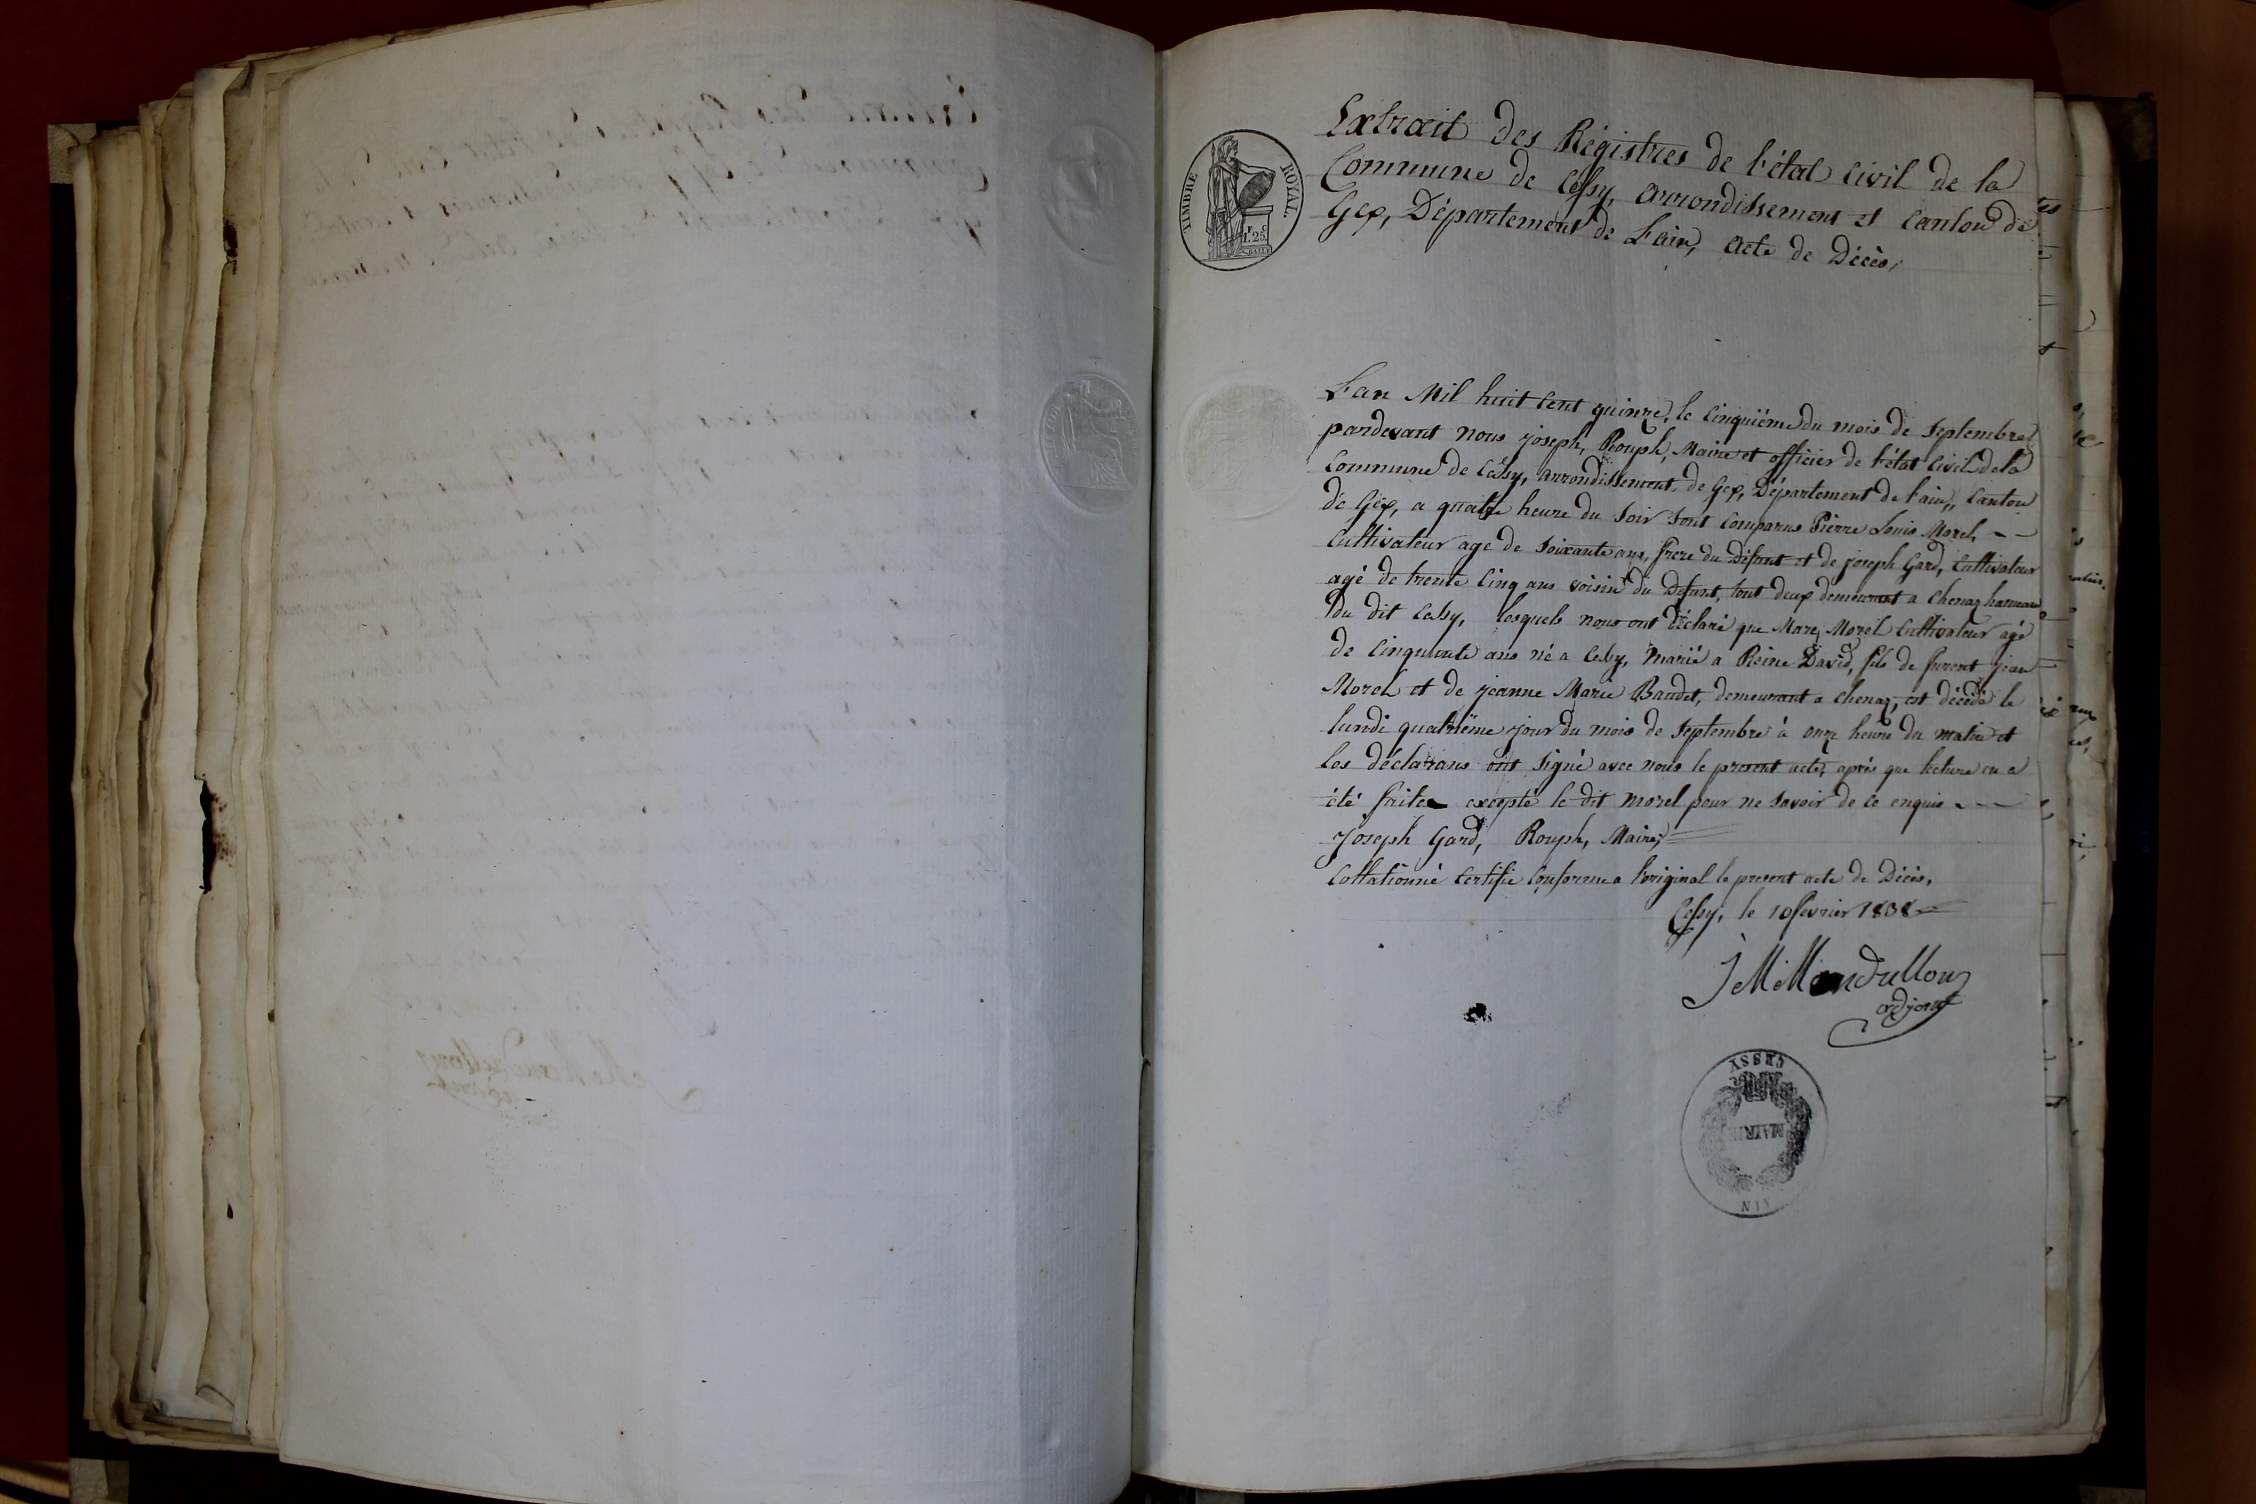 TIMBRE ROYAL
1. 25
Extrait des Régistres de l'état civil de la
Commune de Cessy, arrondissement et Canton de
Gex, Département de L'ain, acte de Décès,
L'an Mil huit Cent quinze, le Cinquième du mois de Septembre,
pardevant nous joseph, Rouph, Maire et officier de l'état Civil de la
Commune de Cessy, arrondissement de Gex, Département de l'ain, Canton
de Gex, a quatre heure du Soir Sont Comparus Pierre Louis Morel,
Cultivateur age de Soixante ans, frere du Défunt et de joseph Gard, Cultivateur
agé de trente Cinq ans voisin du Défunt, tout deux demeurant a Chenaz hameau
du dit Cessy, lesquels nous ont déclaré que Marc Morel Cultivateur agé
de Cinquante ans né a Cessy, marié a Reine David, fils de furent jean
Morel et de jeanne Marie Baudet, demeurant a Chenaz, est décédé le
lundi quatrième jour du mois de Septembre à onze heure du matin et
les déclarans ont Signé avec nous le present acte, après que lecture en a
été faite excepté le dit morel pour ne Savoir de ce enquis
Joseph Gard, Rouph, Maire,
Collationné Certifié Conforme a l'original le present acte de Décès,
Cessy, le 10 fevrier 1838
adjoint
CESSY
MAIRIE
AIN